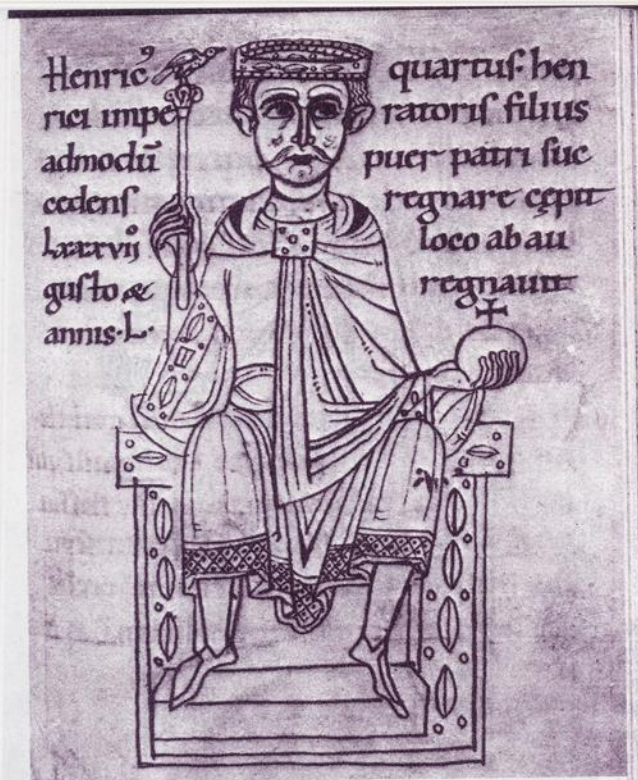 Henricꝰ quartus. hen
rici impe ratoris filius
admodū puer patri suc
cedens regnare cępit
lxxxvij͛ loco ab au
gusto & regnauit
annis. L.